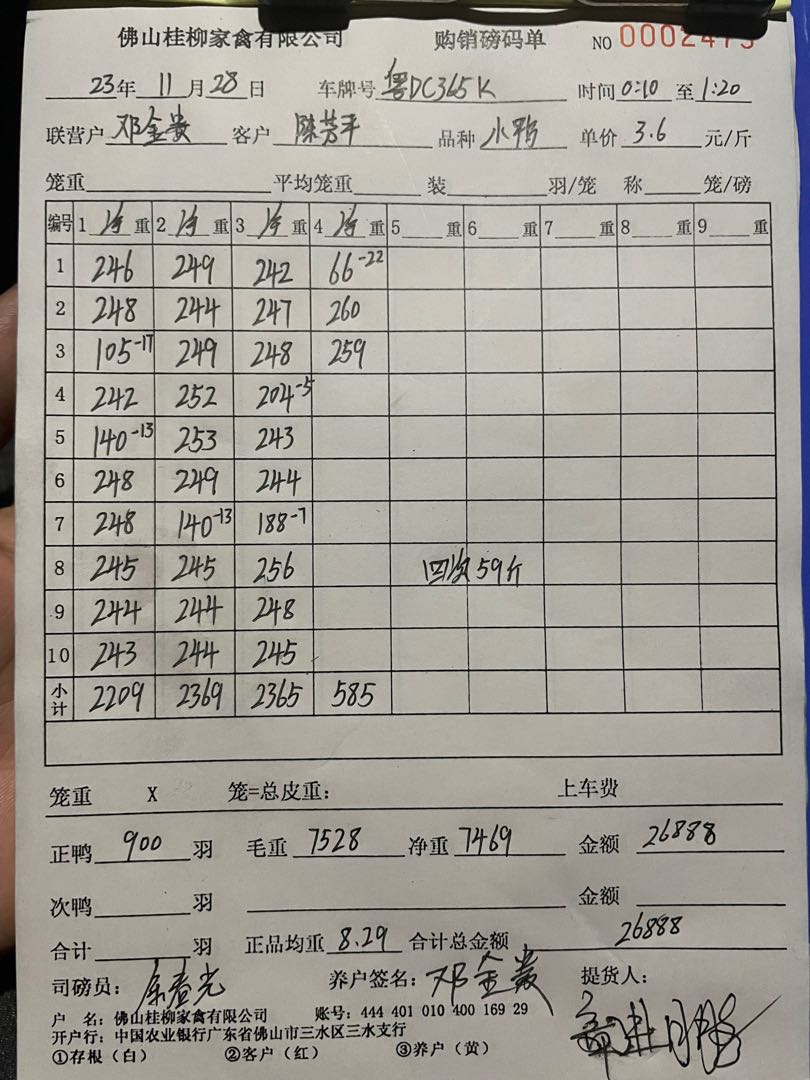 佛山桂柳家禽有限公司 购销磅码单 NO 0002475
23年 11月 28日 车牌号 粤DC365K 时间 0:10 至 1:20
联营户 邓金贵 客户 陈芳平 品种 水鸭 单价 3.6 元/斤
笼重 平均笼重 装 羽/笼 称 笼/磅
编号 1 净 重 2 净 重 3 净 重 4 净 重 5 重 6 重 7 重 8 重 9 重
1 246 249 242 66-22
2 248 244 247 260
3 105-17 249 248 259
4 242 252 204-5
5 140-13 253 243
6 248 249 244
7 248 140-13 188-7
8 245 245 256 四次59斤
9 244 244 248
10 243 244 245
小计 2209 2369 2365 585
笼重 X 笼=总皮重： 上车费
正鸭 900 羽 毛重 7528 净重 7469 金额 26888
次鸭 羽 金额
合计 羽 正品均重 8.29 合计总金额 26888
司磅员： 养户签名：邓金贵 提货人：
户 名：佛山桂柳家禽有限公司 账号：444 401 010 400 169 29
开户行：中国农业银行广东省佛山市三水区三水支行
①存根（白） ②客户（红） ③养户（黄）